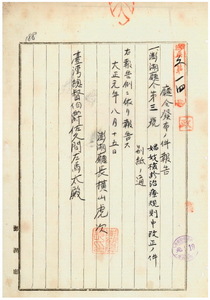 廳令發布ノ件報告
一澎湖廳令第三號
娼妓檢診治療規則中改正ノ件
別紙ノ通
右報告例ニ依リ報告ス
大正元年八月十五日
澎湖廳長橫山虎次
臺灣總督伯爵佐久間左馬太殿